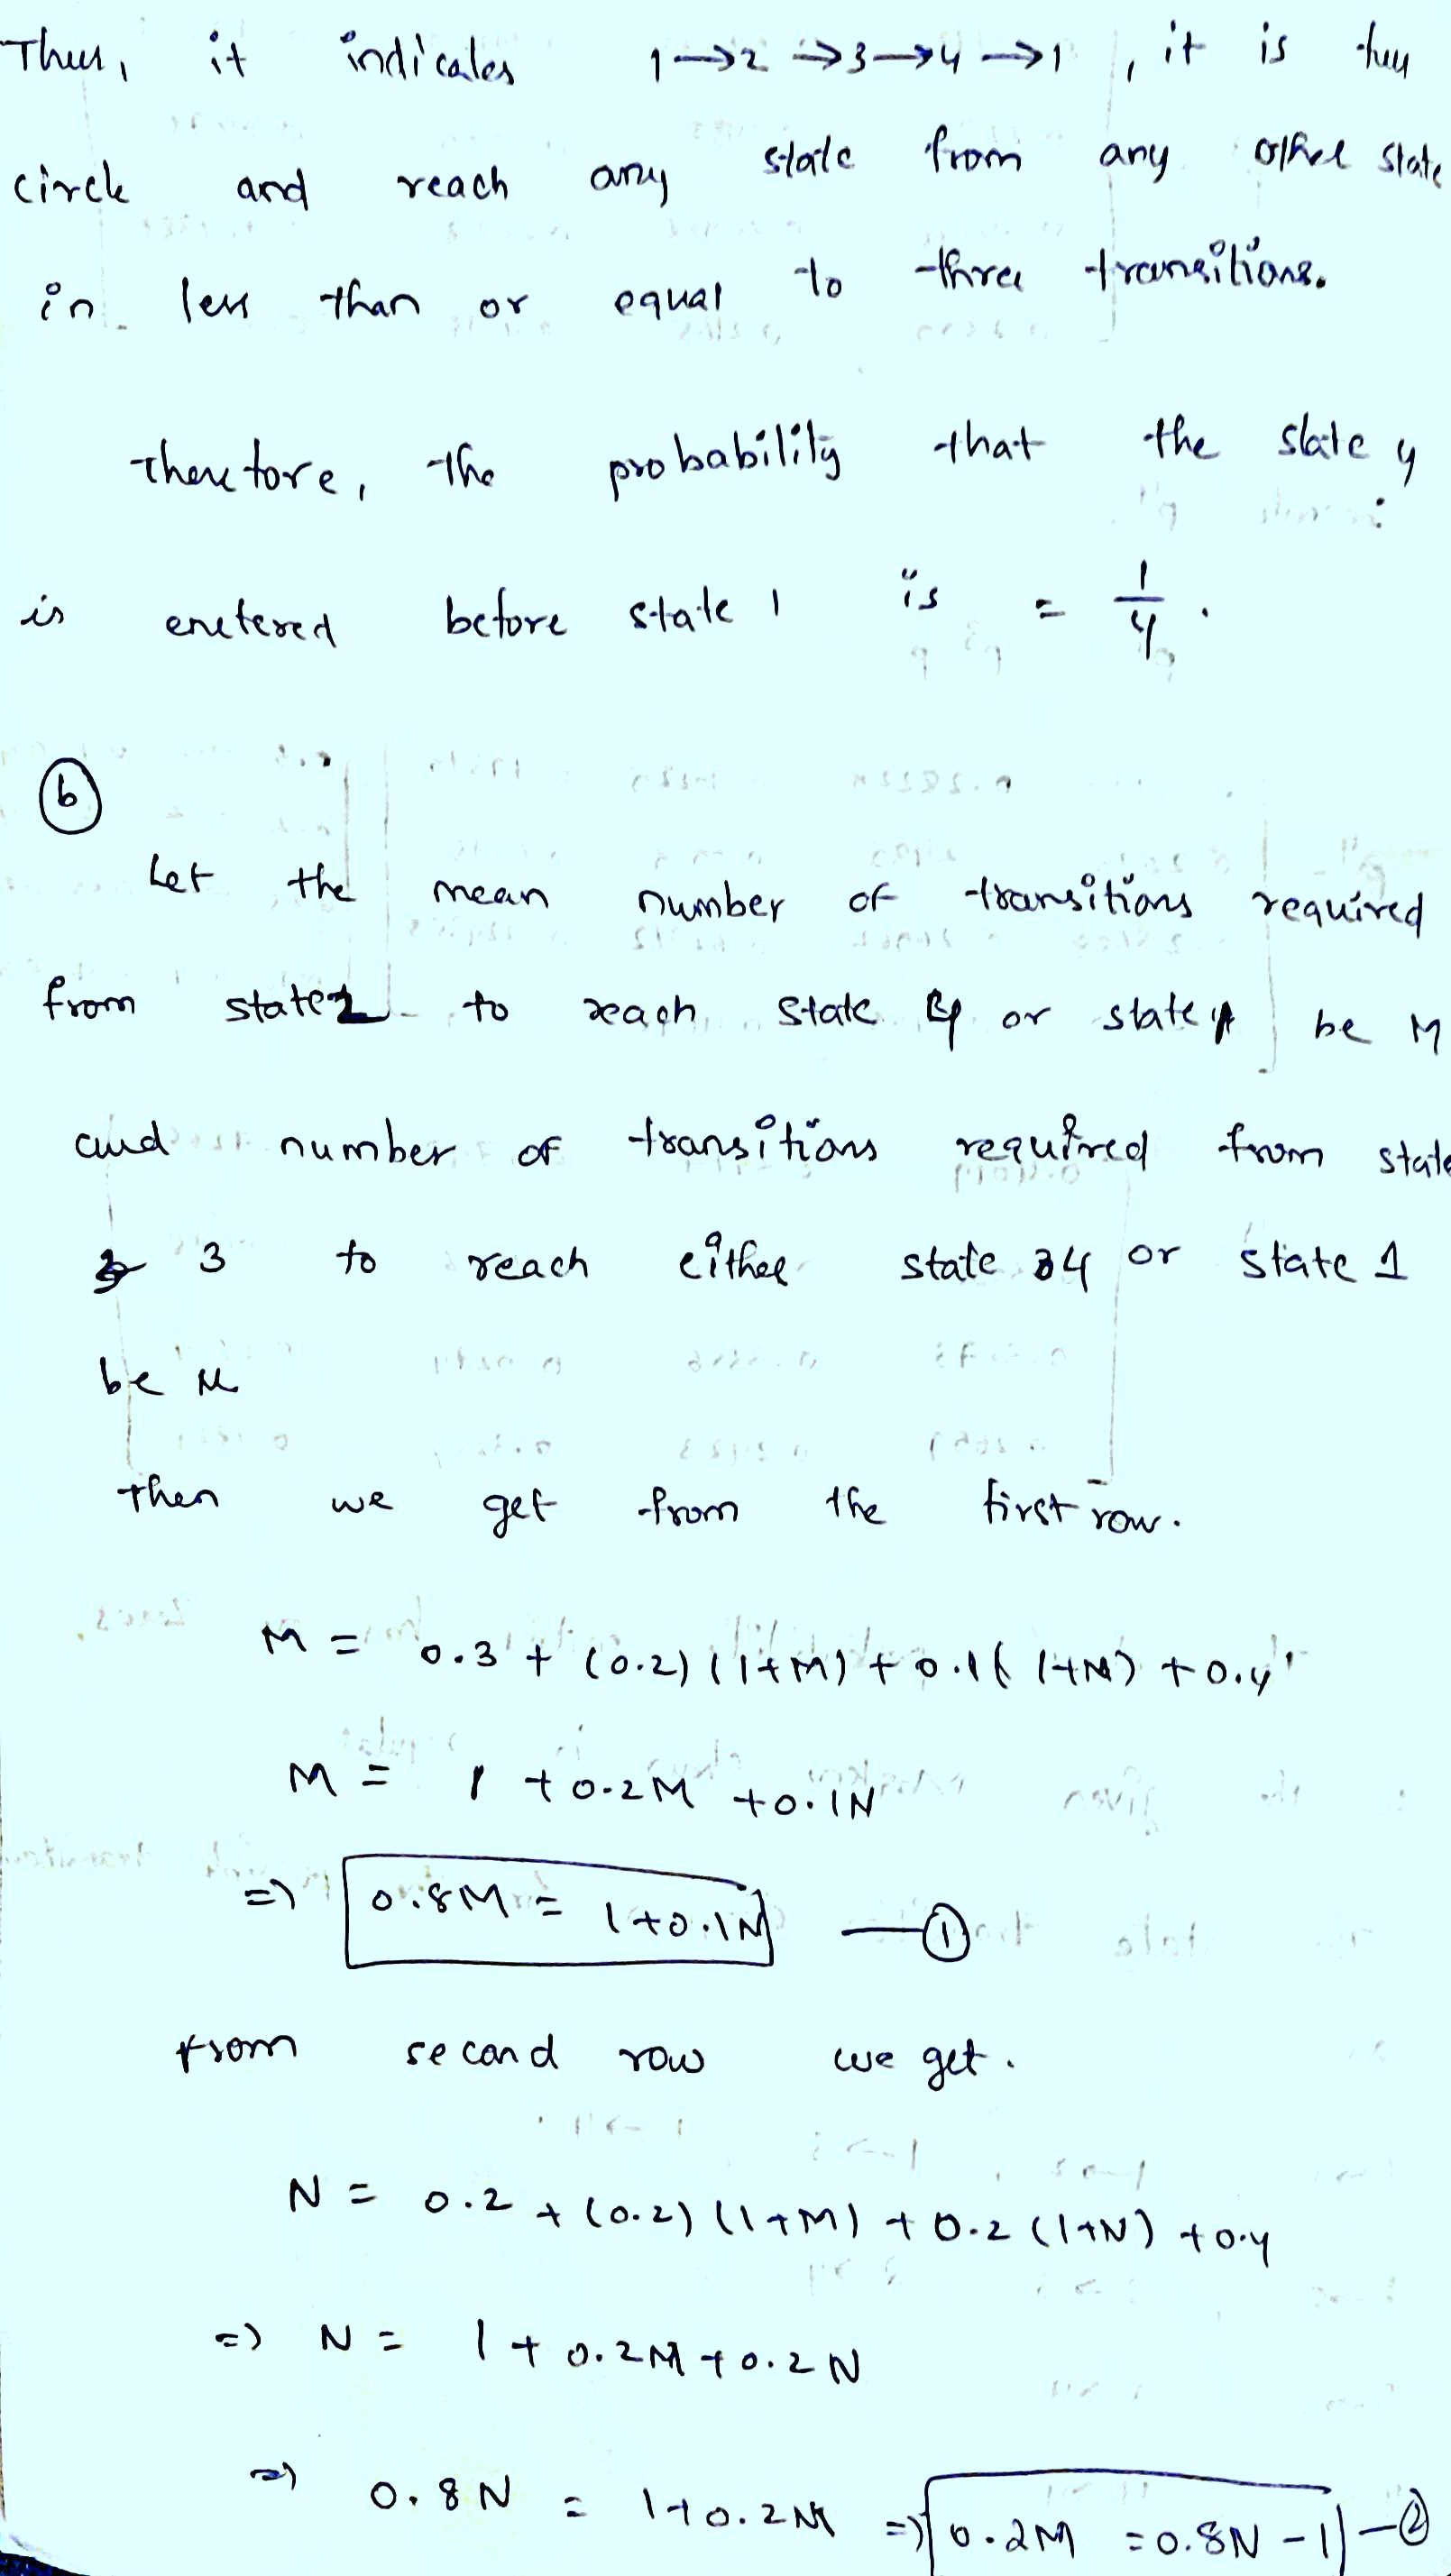 Thus, it indicates 1→2→3→4→1, it is full
circle and reach any state from any other state
in less than or equal to three transitions.
Therefore, the probability that the state 4
is enetered before state 1 is = 1/4.
(b)
Let the mean number of transitions required
from state 2 to reach state 4 or state 1 be M
and number of transitions required from state
3 to reach either state 4 or state 1
be N
Then we get from the first row.
M = 0.3 + (0.2)(1+M) + 0.1(1+N) + 0.4
M = 1 + 0.2M + 0.1N
=> 0.8M = 1+0.1N —①
From second row we get.
N = 0.2 + (0.2)(1+M) + 0.2(1+N) + 0.4
=> N = 1 + 0.2M + 0.2N
=> 0.8N = 1+0.2M => 0.2M = 0.8N - 1 —②